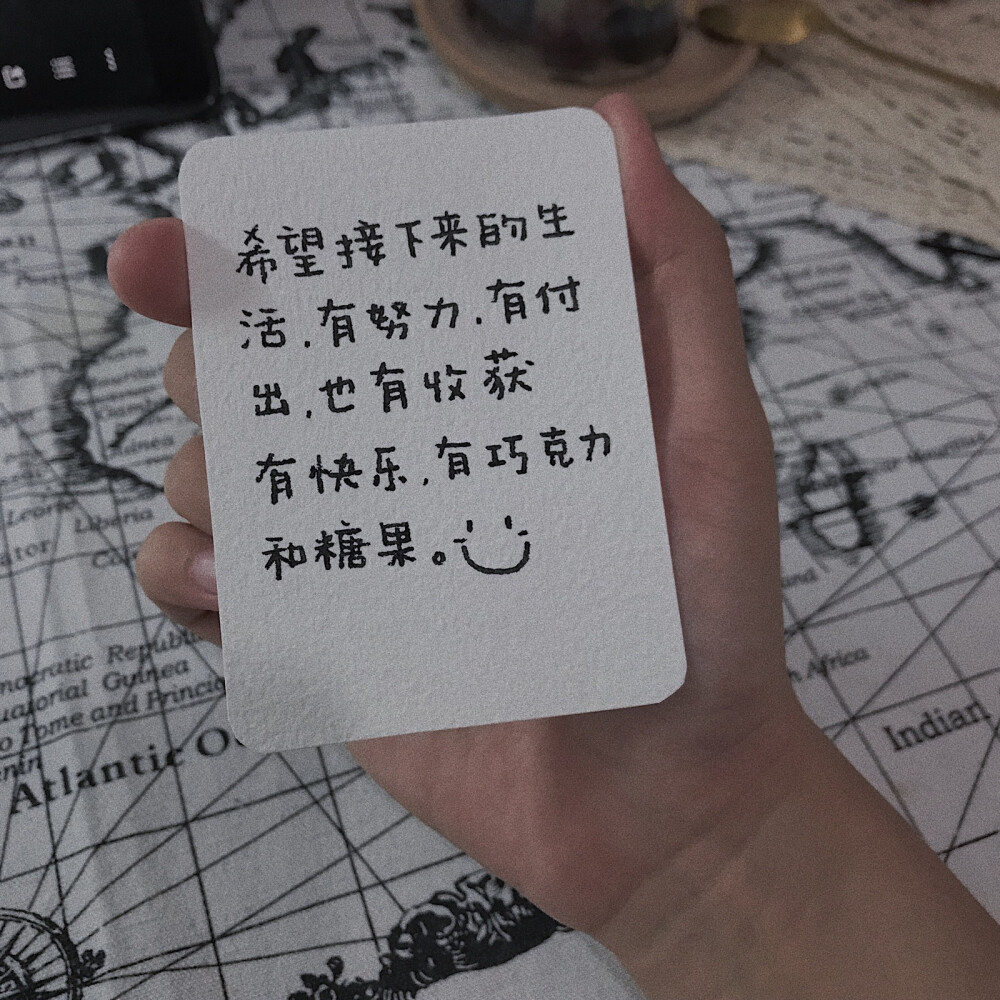 希望接下来的生
活,有努力,有付
出,也有收获
有快乐,有巧克力
和糖果。
Liberia
Guinea
Republic
Guinea
Tome and Principe
Atlantic
Africa
Indian